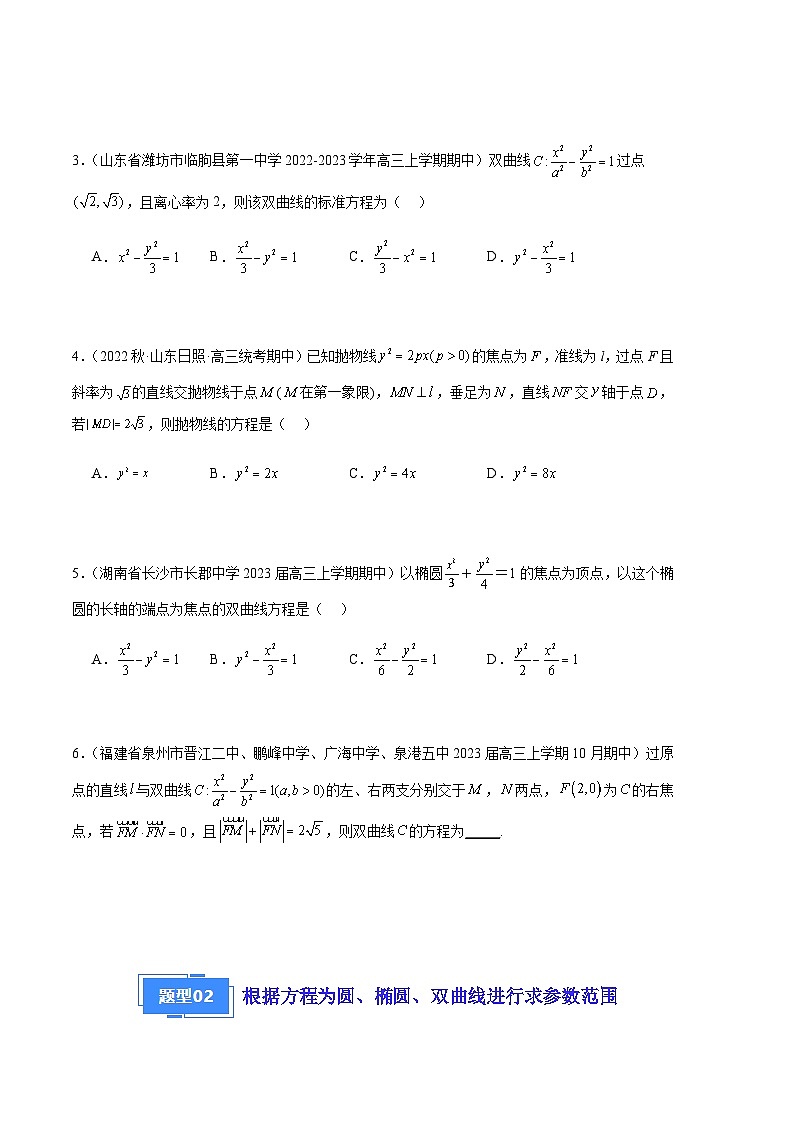 3.(山东省潍坊市临朐县第一中学2022-2023学年高三上学期期中)双曲线 C: x²/a² - y²/b² = 1 过点
(√2, √3),且离心率为2,则该双曲线的标准方程为( )
A. x² - y²/3 = 1 B. x²/3 - y² = 1 C. y²/3 - x² = 1 D. y² - x²/3 = 1
4.(2022秋·山东日照·高三统考期中)已知抛物线 y² = 2px(p > 0) 的焦点为 F,准线为 l,过点 F 且
斜率为 √3 的直线交抛物线于点 M ( M 在第一象限),MN ⊥ l,垂足为 N,直线 NF 交 y 轴于点 D,
若 |MD| = 2√3,则抛物线的方程是( )
A. y² = x B. y² = 2x C. y² = 4x D. y² = 8x
5.(湖南省长沙市长郡中学2023届高三上学期期中)以椭圆 x²/3 + y²/4 =1 的焦点为顶点,以这个椭
圆的长轴的端点为焦点的双曲线方程是( )
A. x²/3 - y² = 1 B. y² - x²/3 = 1 C. x²/6 - y²/2 = 1 D. y²/2 - x²/6 = 1
6.(福建省泉州市晋江二中、鹏峰中学、广海中学、泉港五中2023届高三上学期10月期中)过原
点的直线 l 与双曲线 C: x²/a² - y²/b² = 1(a,b > 0) 的左、右两支分别交于 M,N 两点,F(2,0) 为 C 的右焦
点,若 FM · FN = 0,且 |FM| + |FN| = 2√5,则双曲线 C 的方程为_____.
题型02 根据方程为圆、椭圆、双曲线进行求参数范围